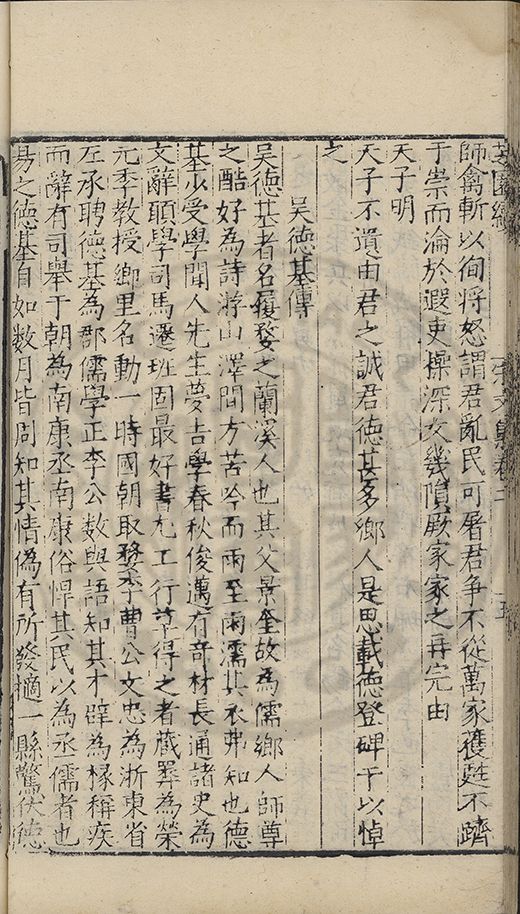 師禽斬以徇将怒謂君亂民可屠君争不從萬家獲甦不躋
于崇而淪於遐吏操深文幾隕厥家家之再完由
天子明
天子不遺由君之誠君徳甚多鄉人是思載徳登碑于以悼
之
吴徳基傳
吴徳基者名履婺之蘭溪人也其父景奎故為儒鄉人師尊
之酷好為詩游山澤間方苦吟而雨至雨濡其衣弗知也德
基少受學聞人先生夢吉學春秋俊邁有竒材長通諸史為
文辭頋學司馬遷班固最好書尤工行草得之者藏弆為榮
元季教授鄉里名動一時國朝取婺李曹公文忠為浙東省
左丞聘徳基為郡儒學正李公数與語知其才辟為椽稱疾
而辭有司舉于朝為南康丞南康俗悍其民以為丞儒者也
易之徳基自如数月皆周知其情偽有所發擿一縣驚伏徳